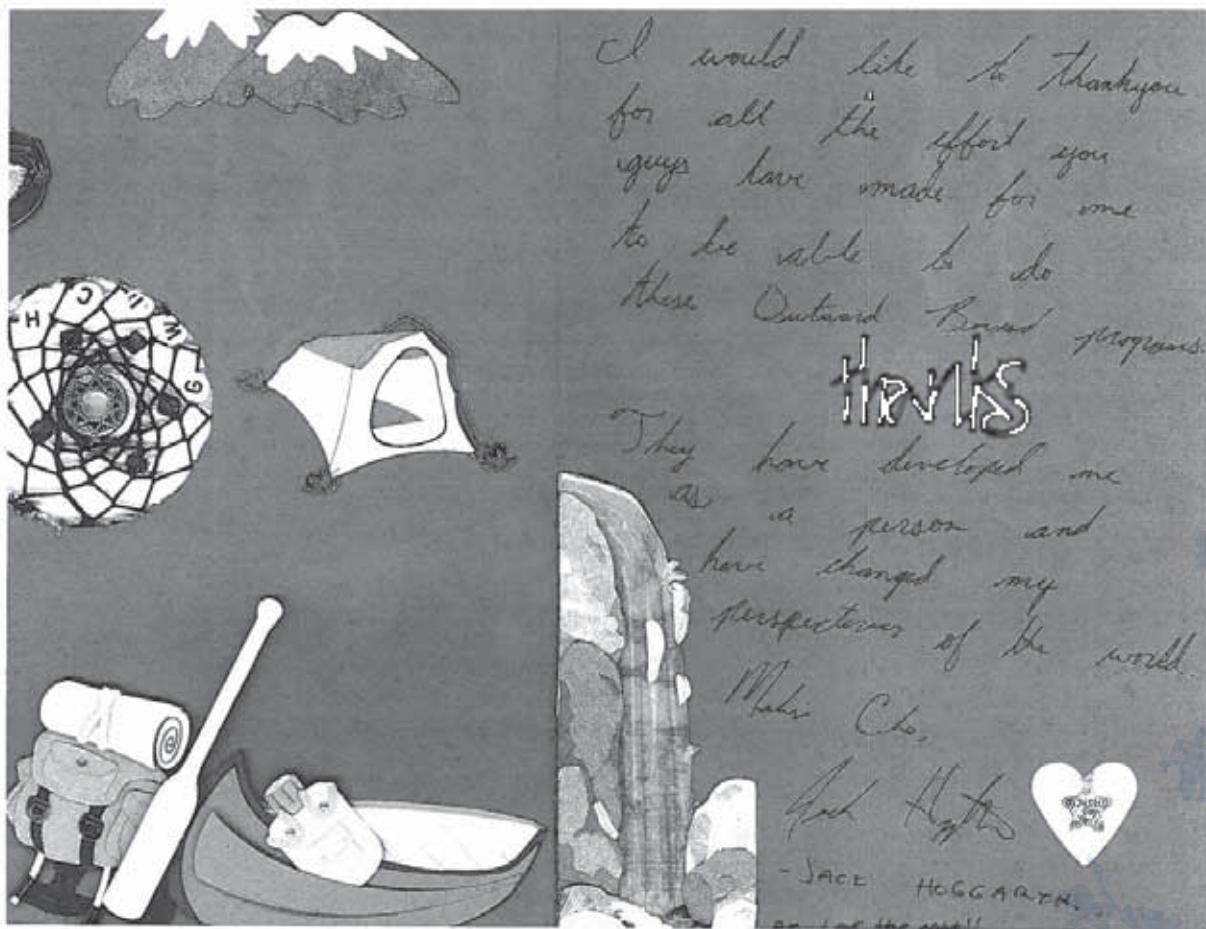 I would like to thankyou
for all the effort you
guys have made for me
to be able to do
these Outward Bound programs.
thanks
They have developed me
as a person and
have changed my
perspectives of the world.
Cho,
Jack
- JACK HOGGARTH.
H C W G